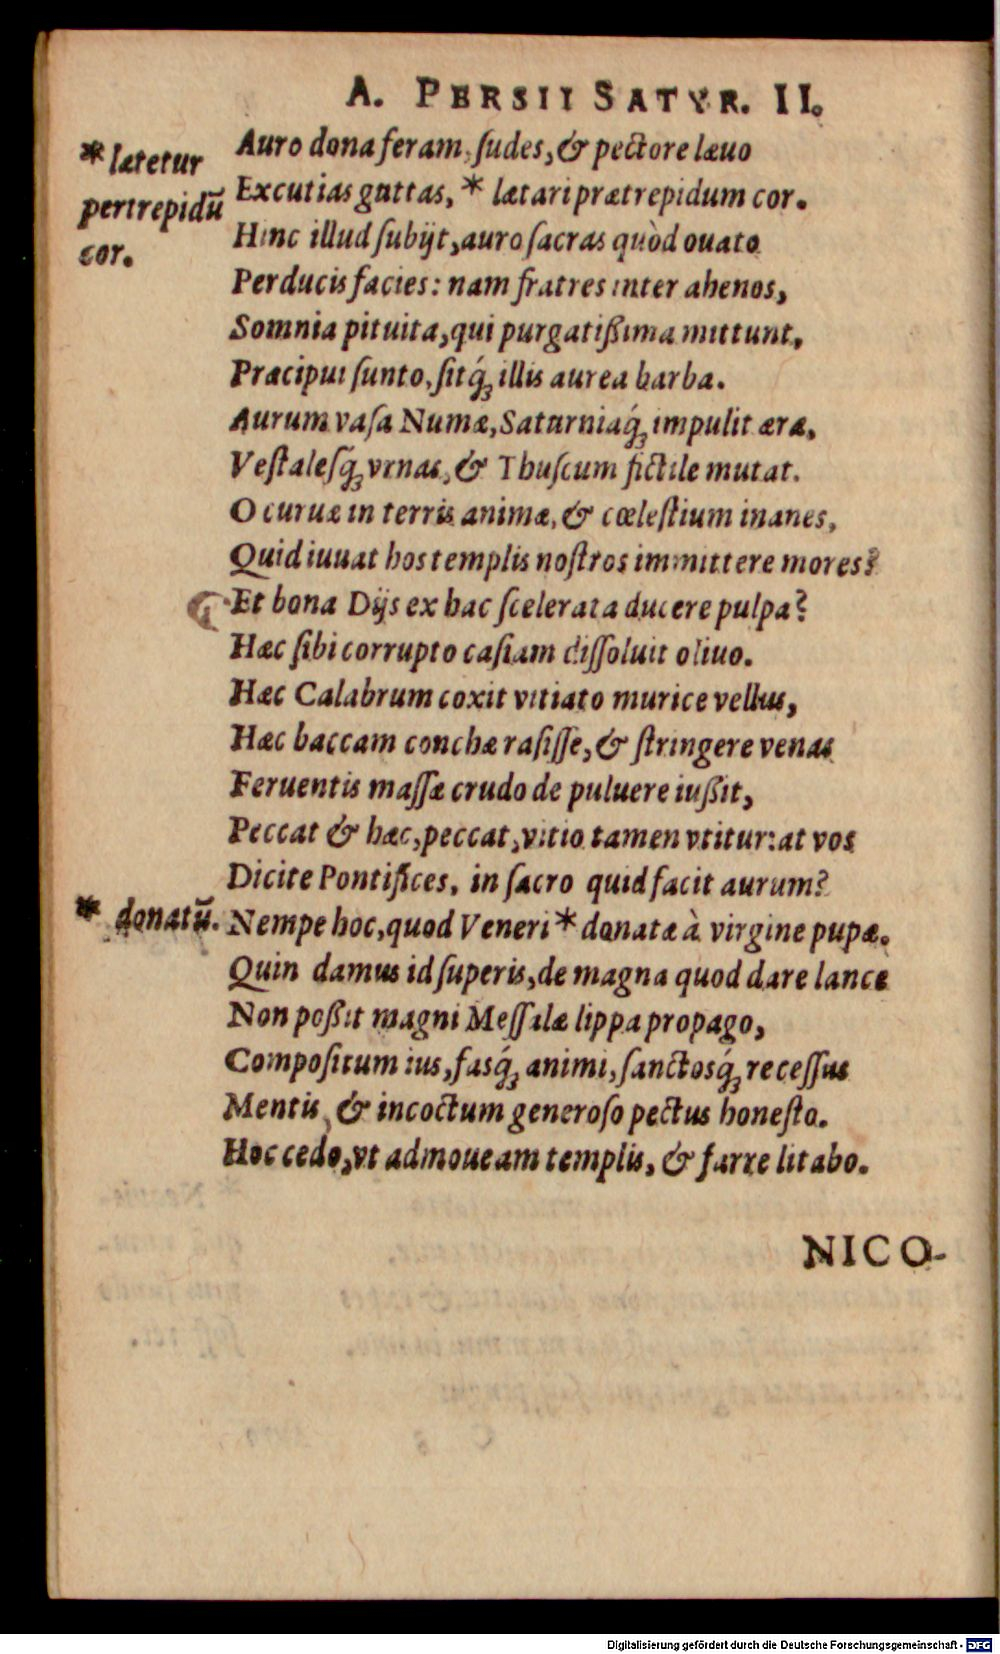 A. PERSII SATYR. II.
* lætetur
pertrepidũ
cor.
Auro dona feram, ſudes, & pectore læuo
Excutias guttas, * lætari prætrepidum cor.
Hinc illud ſubijt, auro ſacras quòd ouato
Perducis facies: nam fratres inter ahenos,
Somnia pituita, qui purgatißima mittunt,
Præcipui ſunto, ſitq́ꝫ illis aurea barba.
Aurum vaſa Numæ, Saturniaq́ꝫ impulit æra,
Veſtaleſq́ꝫ vrnas, & Thuſcum fictile mutat.
O curuæ in terris animæ, & cœleſtium inanes,
Quid iuuat hos templis noſtros immittere mores?
Et bona Dijs ex hac ſcelerata ducere pulpa?
Hæc ſibi corrupto caſiam diſſoluit oliuo.
Hæc Calabrum coxit vitiato murice vellus,
Hæc baccam conchæ raſiſſe, & ſtringere venas
Feruentis maſſæ crudo de puluere iußit,
Peccat & hæc, peccat, vitio tamen vtitur: at vos
Dicite Pontifices, in ſacro quid facit aurum?
* donatũ.
Nempe hoc, quod Veneri * donatæ à virgine pupæ.
Quin damus id ſuperis, de magna quod dare lance
Non poßit magni Meſſalæ lippa propago,
Compoſitum ius, faſq́ꝫ animi, ſanctosq́ꝫ receſſus
Mentis, & incoctum generoſo pectus honeſto.
Hoc cedo, vt admoueam templis, & farre litabo.
NICO-
Digitalisierung gefördert durch die Deutsche Forschungsgemeinschaft - DFG